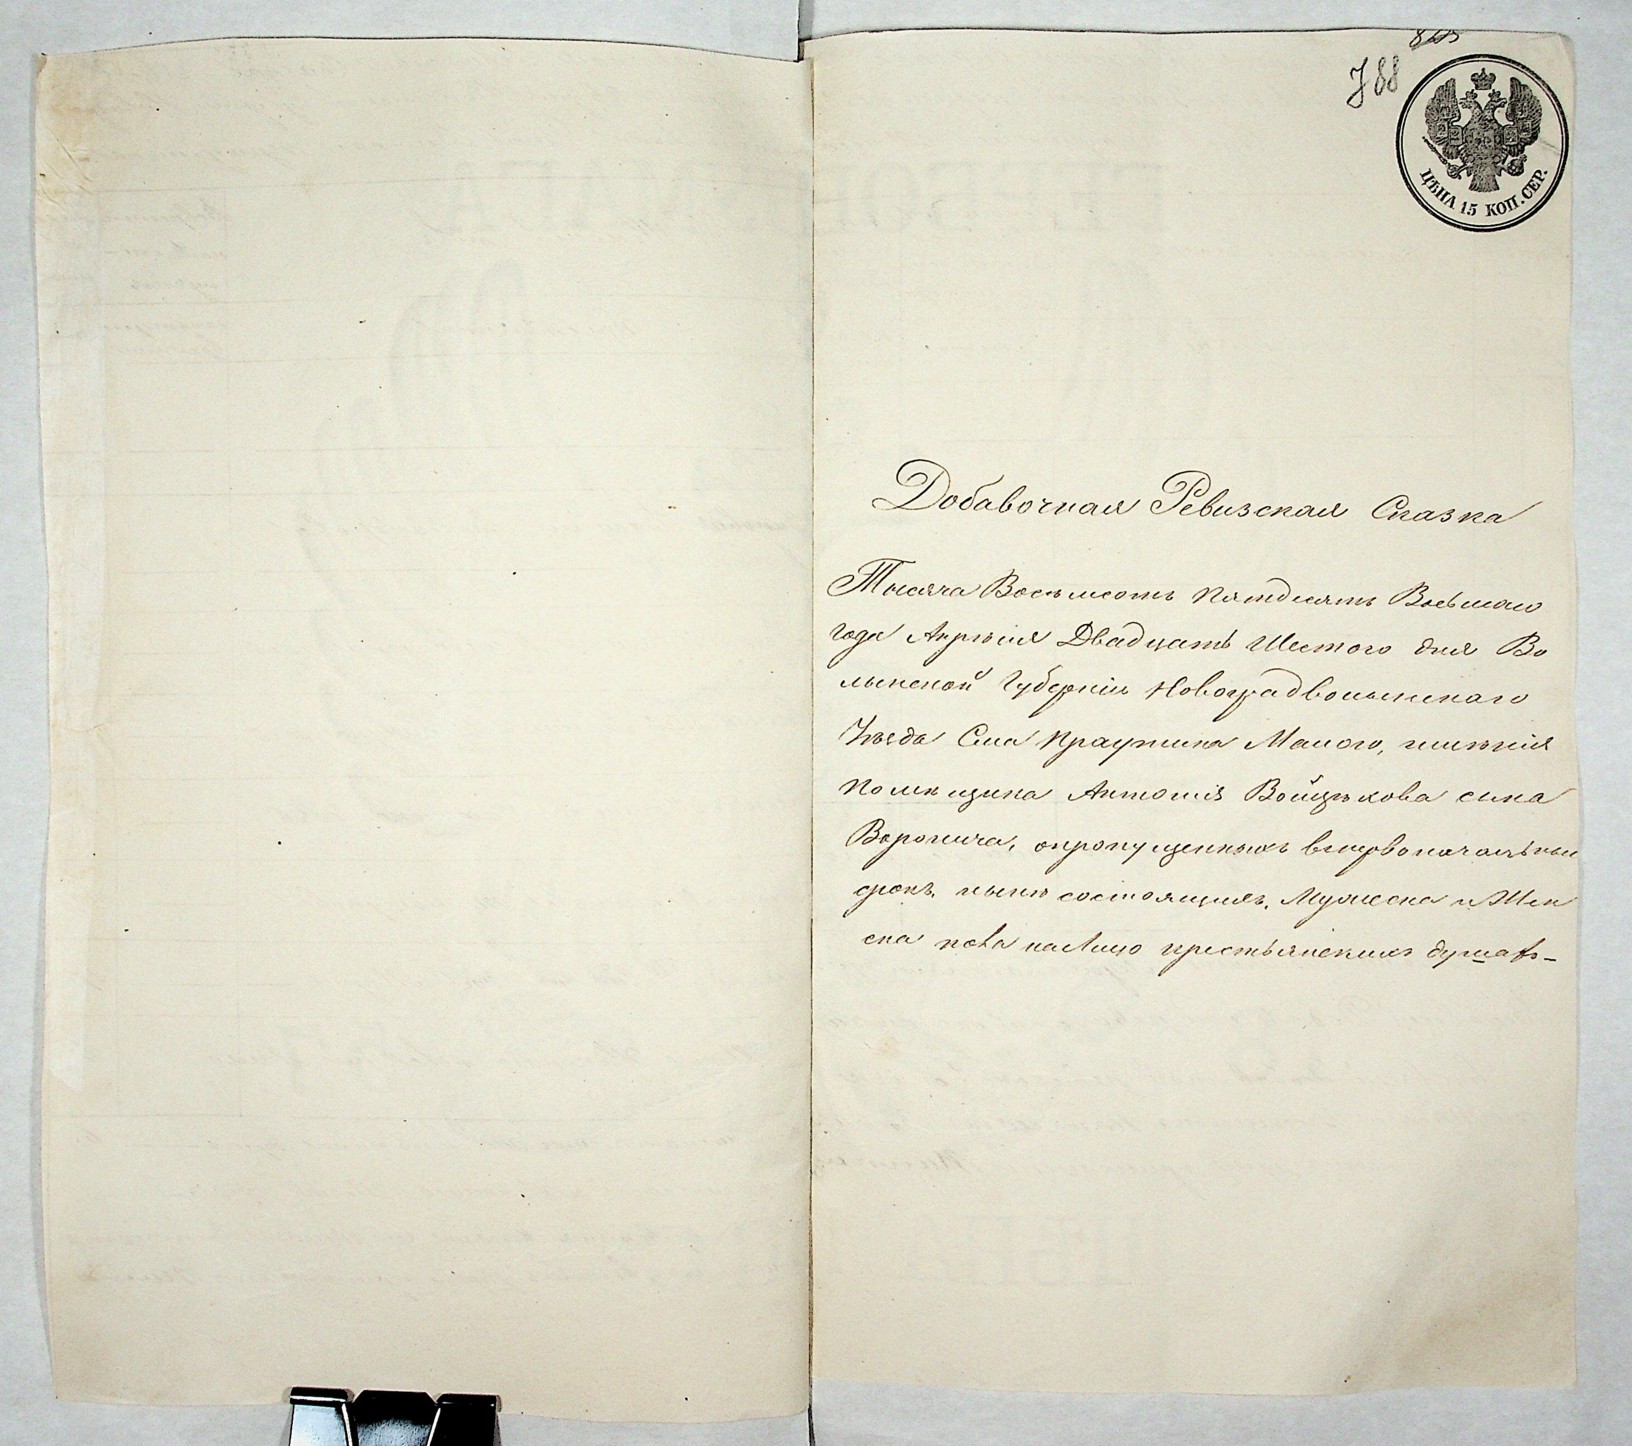 788
ЦѢНА 15 КОП. СЕР.
Добавочная Ревизская Сказка
Тысяча Восемсотъ Пятдесятъ Восьмаго
года Апрѣля Двадцать Шестого дня Во
лынской Губерніи Новоградволынскаго
Уѣзда Села Малого, имѣнія
Помѣщика Антонія Войцѣхова сына
Воронича, опропущенныхъ впервоначальный
срокъ, нынѣ состоящихъ, Мужеска и Жен
ска пола налицо крестьянскихъ душахъ